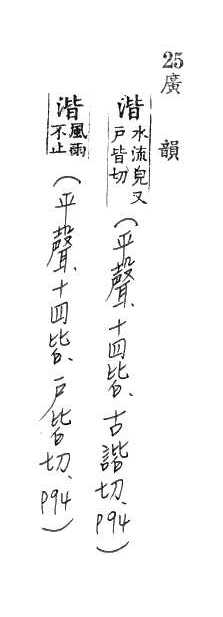 25廣韻
湝水流皃又戶皆切(平聲、十四皆、古諧切、P94)
湝風雨不止(平聲、十四皆、戶皆切、P94)